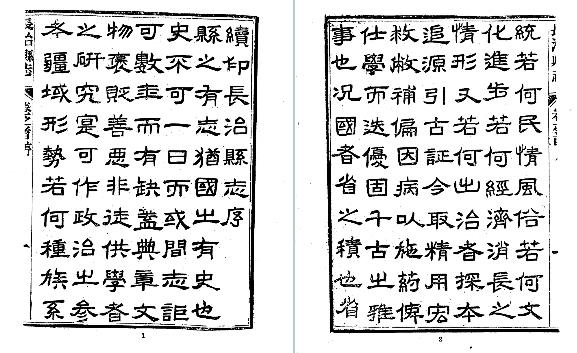 續印長治縣志序
縣之有志猶國之有史也
史不可一日而或間志詎
可數年而有缺蓋典章文
物褒貶善惡非徒供學者
之研究寔可作政治之參
考疆域形勢若何種族系
長治縣志
1
統若何民情風俗若何文
化進步若何經濟消長之
情形又若何出治者探本
追源引古証今取精用宏
救敝補偏因病以施藥俾
仕學而迭優固千古之雅
事也况國者省之積也省
2